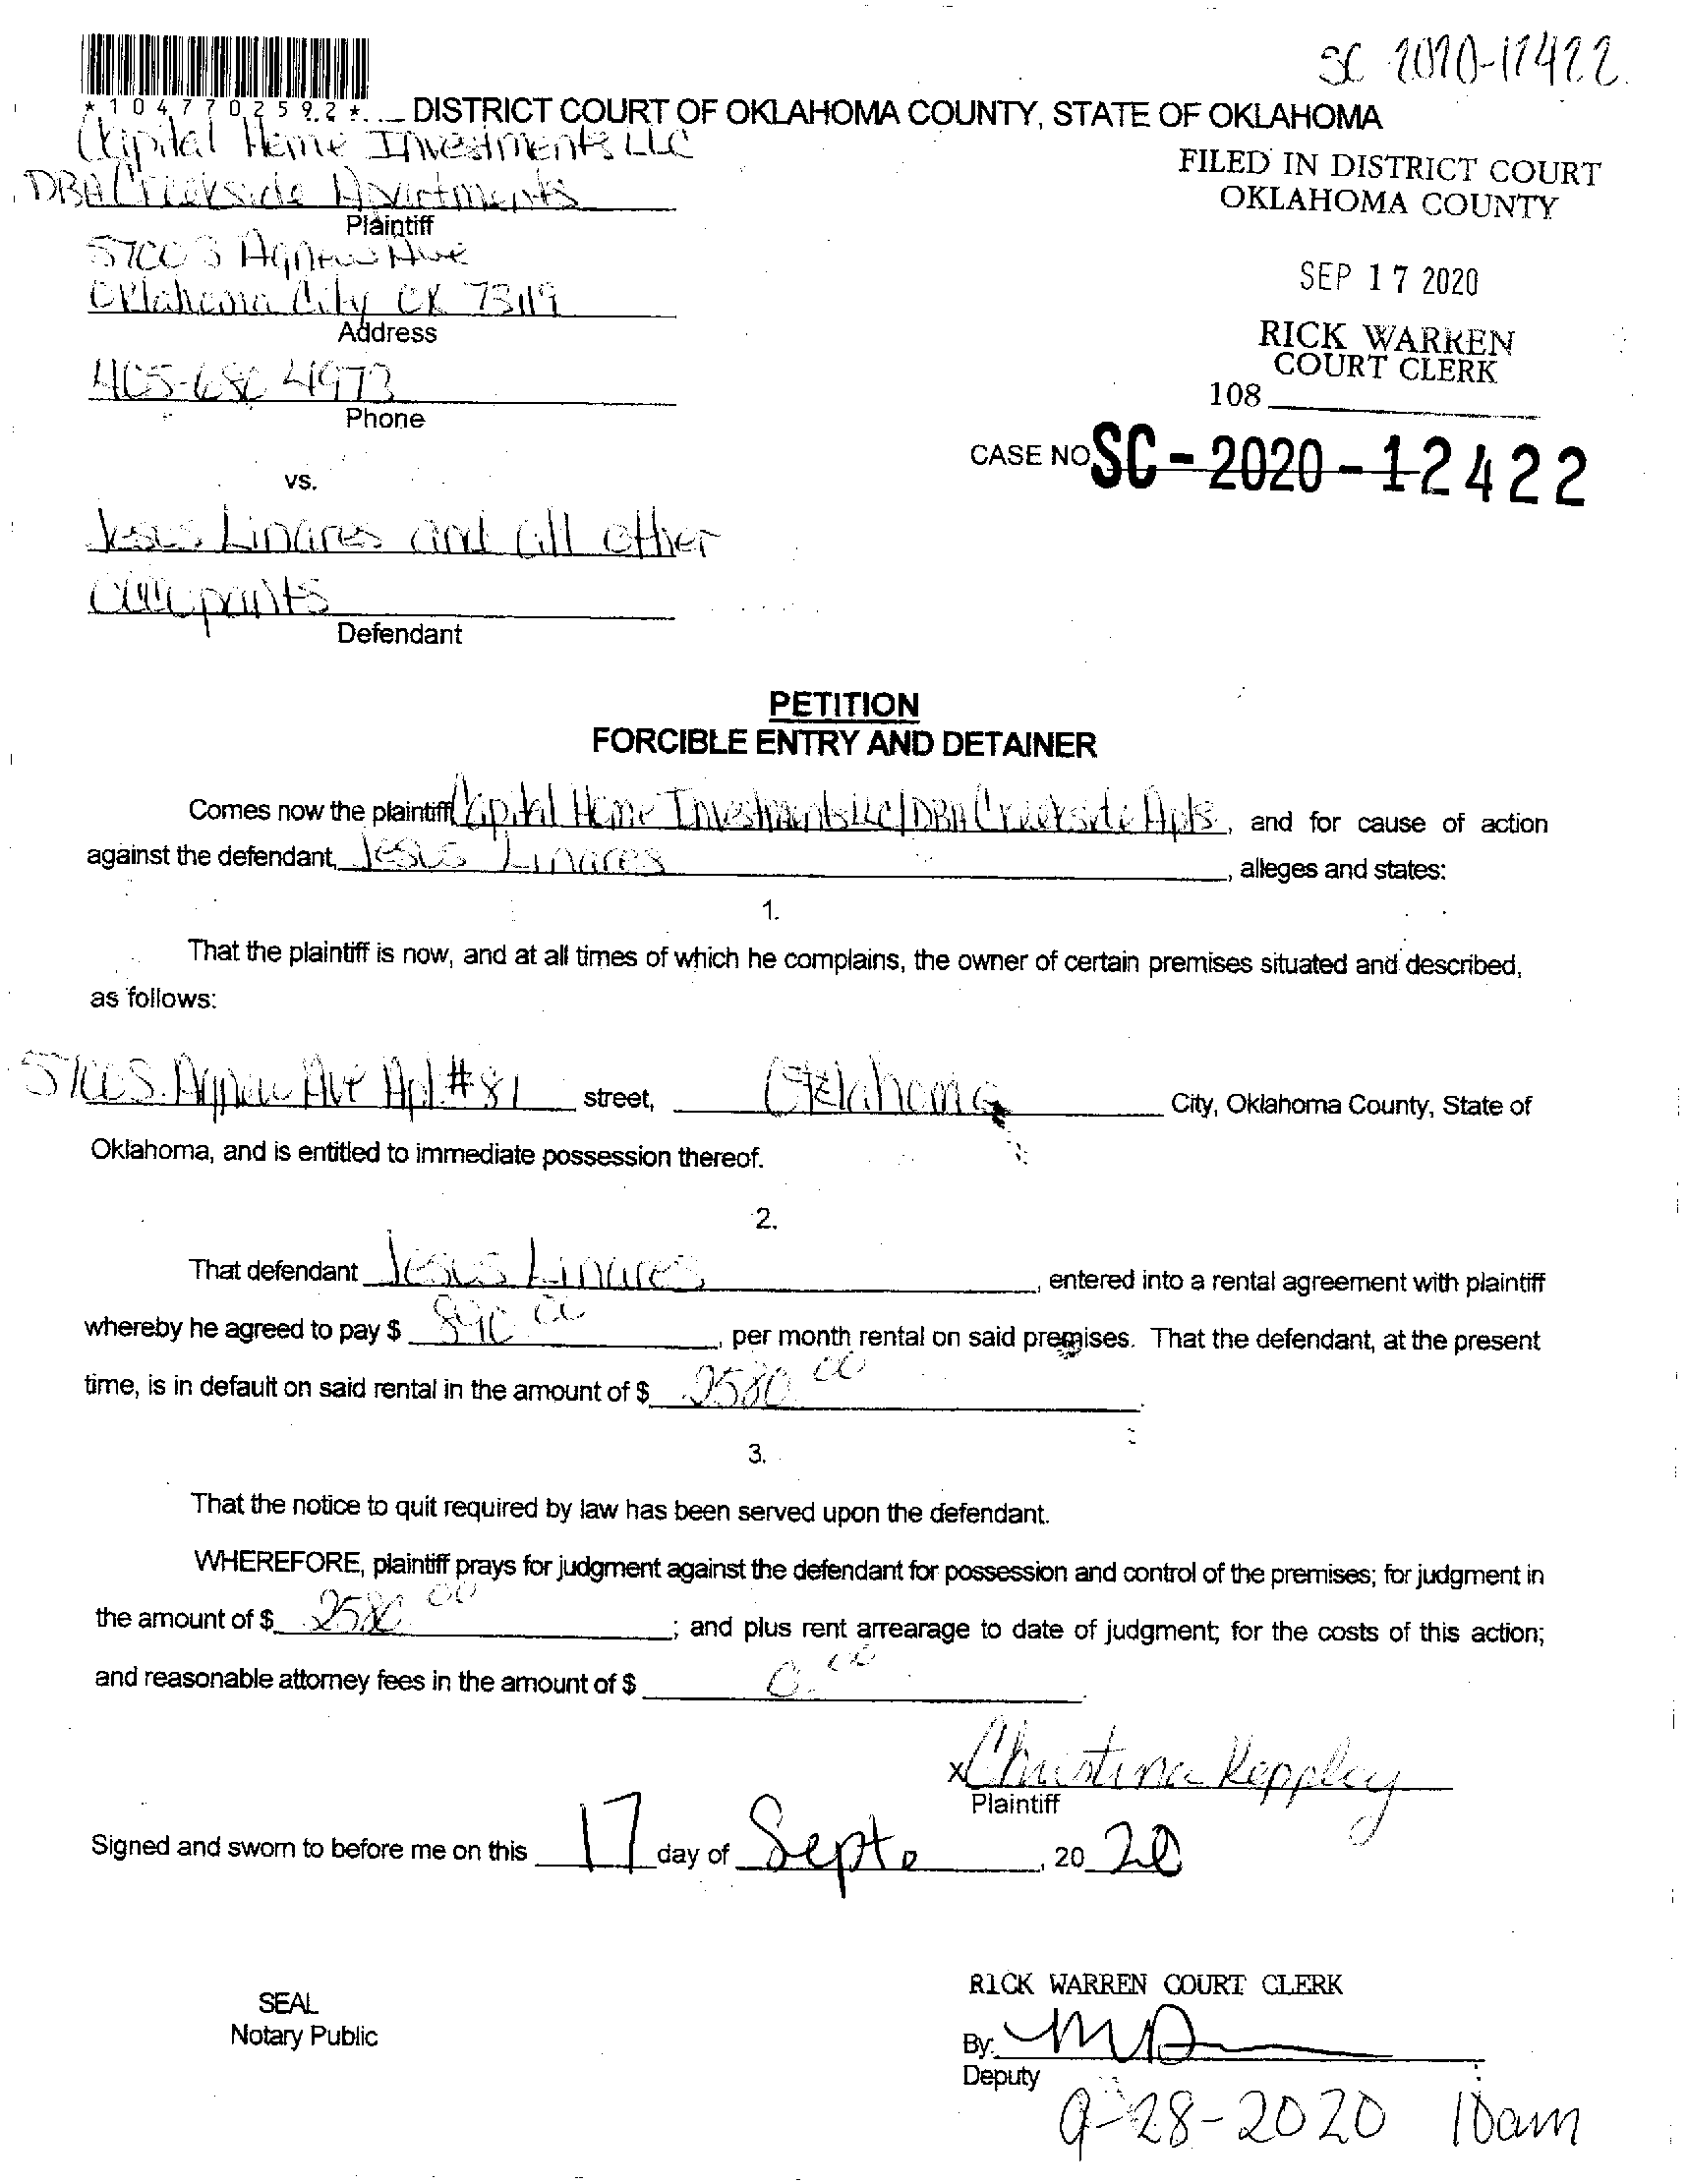 SC 2020-12422
*1047702592*
DISTRICT COURT OF OKLAHOMA COUNTY, STATE OF OKLAHOMA
Capital Home Investments LLC
DBA Creekside Apartments
Plaintiff
FILED IN DISTRICT COURT
OKLAHOMA COUNTY
5700 S Agnew Ave
Oklahoma City OK 73119
Address
SEP 17 2020
RICK WARREN
COURT CLERK
405-680 4973
Phone
108
CASE NO SC-2020-12422
vs.
Jesus Linares and all other
occupants
Defendant
PETITION
FORCIBLE ENTRY AND DETAINER
Comes now the plaintiff Capital Home Investments LLC/DBA Creekside Apts, and for cause of action
against the defendant, Jesus Linares, alleges and states:
1.
That the plaintiff is now, and at all times of which he complains, the owner of certain premises situated and described,
as follows:
5700 S. Agnew Ave Apt #81 street, Oklahoma City, Oklahoma County, State of
Oklahoma, and is entitled to immediate possession thereof.
2.
That defendant Jesus Linares, entered into a rental agreement with plaintiff
whereby he agreed to pay $ 890 00, per month rental on said premises. That the defendant, at the present
time, is in default on said rental in the amount of $ 2580 00.
3.
That the notice to quit required by law has been served upon the defendant.
WHEREFORE, plaintiff prays for judgment against the defendant for possession and control of the premises; for judgment in
the amount of $ 2580 00; and plus rent arrearage to date of judgment; for the costs of this action;
and reasonable attorney fees in the amount of $ 0.00.
x Christina Keppley
Plaintiff
Signed and sworn to before me on this 17 day of Sept., 20 20
SEAL
Notary Public
RICK WARREN COURT CLERK
By:
Deputy
9-28-2020 10am